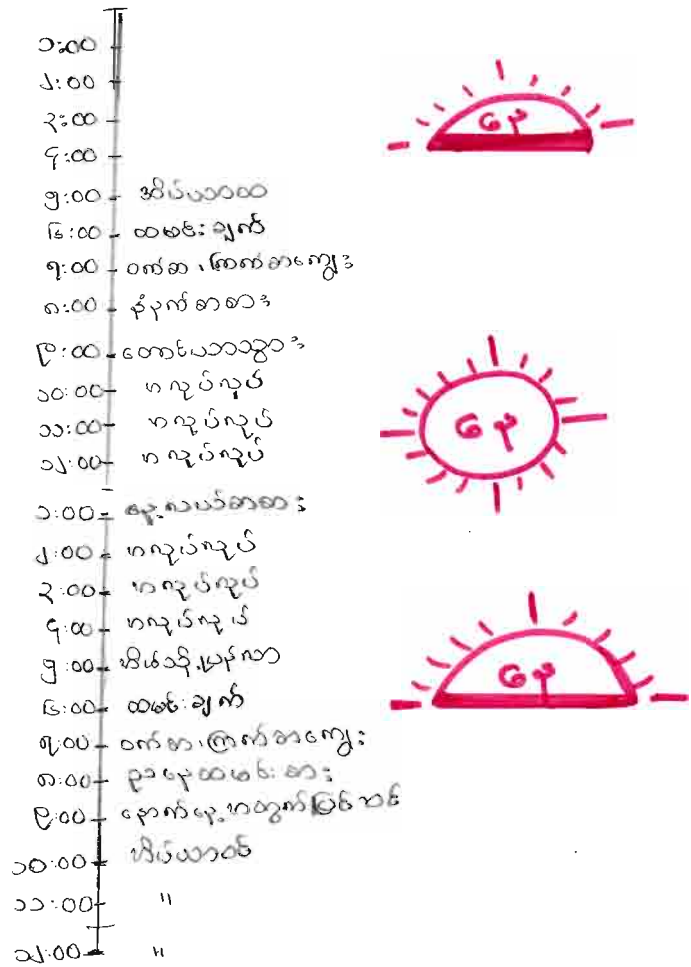 ၁:၀၀
၂:၀၀
၃:၀၀
၄:၀၀
၅:၀၀ အိပ်ယာထ
၆:၀၀ ထမင်းချက်
၇:၀၀ ဝက်စာ၊ ကြက်စာကျွေး
၈:၀၀ နံနက်စာစား
၉:၀၀ တောင်ယာသွား
၁၀:၀၀ အလုပ်လုပ်
၁၁:၀၀ အလုပ်လုပ်
၁၂:၀၀ အလုပ်လုပ်
၁:၀၀ နေ့လယ်စာစား
၂:၀၀ အလုပ်လုပ်
၃:၀၀ အလုပ်လုပ်
၄:၀၀ အလုပ်လုပ်
၅:၀၀ အိမ်သို့ပြန်လာ
၆:၀၀ ထမင်းချက်
၇:၀၀ ဝက်စာ၊ ကြက်စာကျွေး
၈:၀၀ ညနေထမင်းစား
၉:၀၀ နောက်နေ့အတွက်ပြင်ဆင်
၁၀:၀၀ အိပ်ယာဝင်
၁၁:၀၀ "
၁၂:၀၀ "
နေ
နေ
နေ